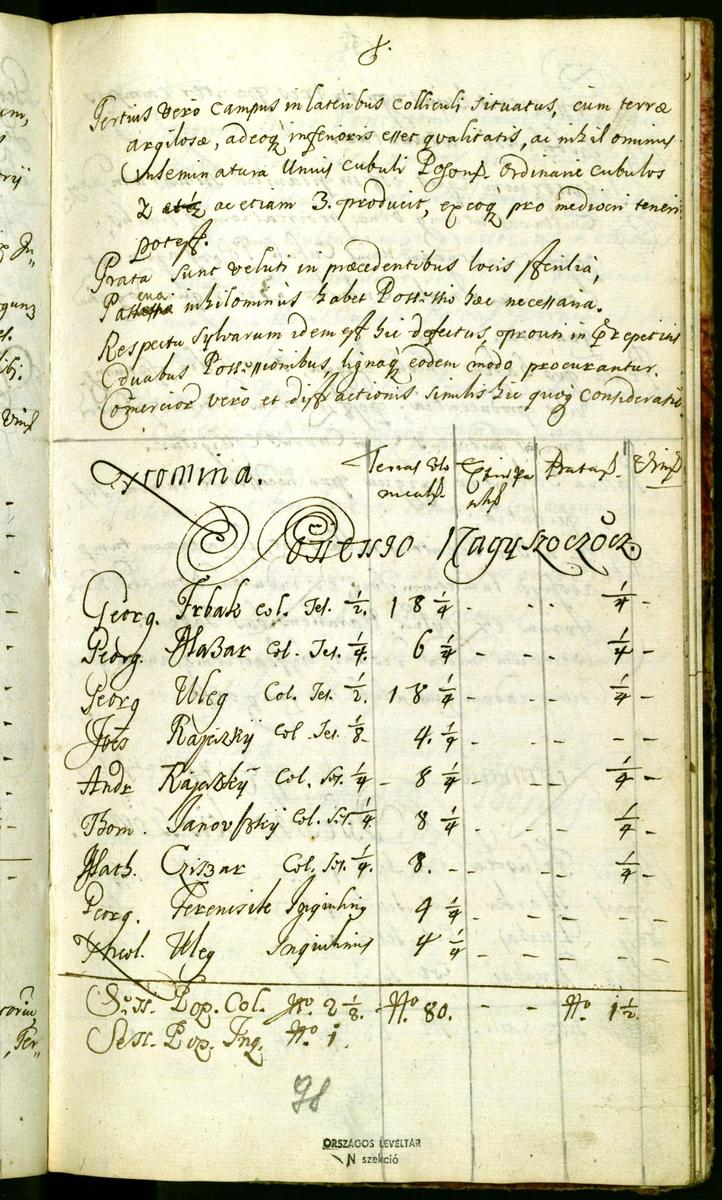 8.
Tertius vero campus in lateribus colliculi situatus, cum terræ
argilosæ, adeoq inferioris esset qvalitatis, ac nihilominus
inseminatura Unius cubuli Poson. Ordinarie cubulos
2 ac etiam 3. producit, ex eoq pro mediocri teneri
potest.
Prata sunt veluti in præcedentibus locis sterilia,
Pascua nihilominus habet Possessio hæc necessaria.
Respectu Sylvarum idem est hic defectus, prouti in
Duabus Possessionibus, lignaq eodem modo procurantur.
Comercior vero et distractionis similis hic quoq Consideratio.
Nomina.
Terras
Prata
Possessio Nagyszoczocz.
Georg. Trbak Col. Ses. 1/2. 18 1/4 - - - 1/4 -
Georg. Mazar Col. Ses. 1/4. 6 1/4 - - - 1/4 -
Georg Uleg Col. Ses. 1/2. 18 1/4 - - - 1/4 -
Joes Rajczkij Col. Ses. 1/8. 4. 1/4 - - - - -
Andr Rajczkij Col. Ses. 1/4 - 8 1/4 - - - 1/4 -
Thom. Janovszkij Col. Ses 1/4. 8 1/4 - - - 1/4 -
Math. Czizar Col. Ses. 1/4. 8. - - - 1/4 -
Georg. Inqvilinq 4 1/4 - - - - -
Uleg Inqvilinus 4 1/4 - - - - -
Sess. Pop. Col. No 2 1/8. No 80. - - No. 1 1/2.
Sess. Pop. Inq. No 1.
98
ORSZÁGOS LEVÉLTÁR
N szekció